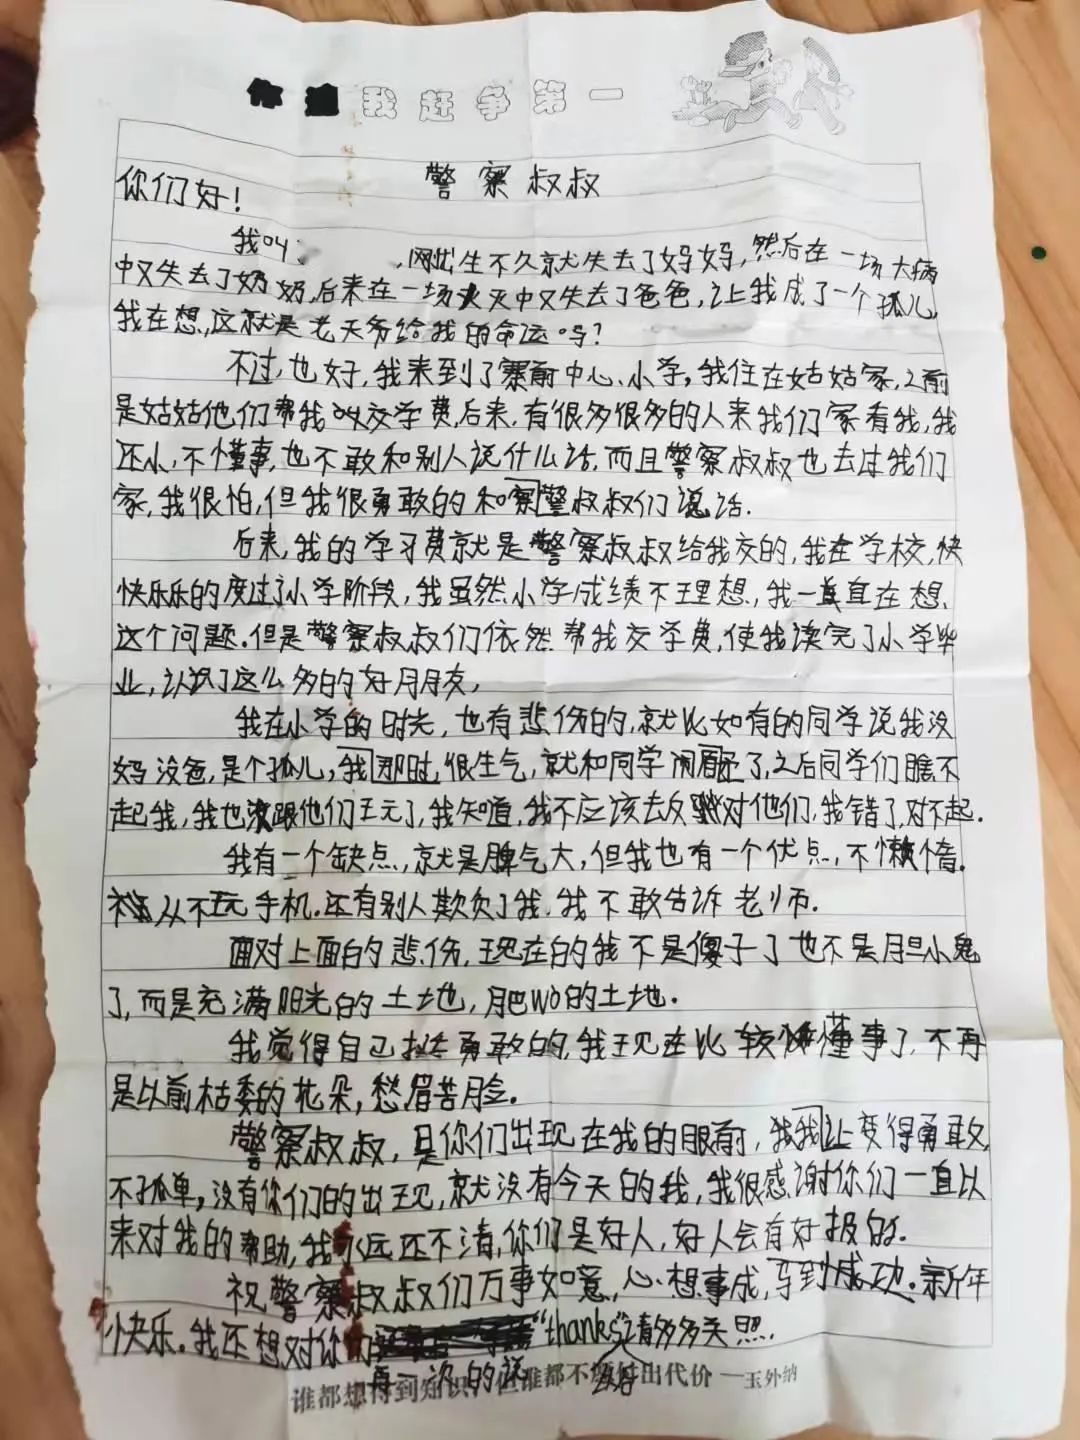 你追我赶争第一
警察叔叔
你们好！
我叫 ，刚出生不久就失去了妈妈，然后在一场大病
中又失去了奶奶，后来在一场火灾中又失去了爸爸，让我成了一个孤儿，
我在想，这就是老天爷给我的命运吗？
不过，也好，我来到了寨前中心小学。我住在姑姑家，之前
是姑姑他们帮我叫交学费，后来，有很多很多的人来我们家看我，我
还小，不懂事，也不敢和别人说什么话，而且警察叔叔也去过我们
家，我很怕，但我很勇敢的和察警叔叔们说话.
后来，我的学习费就是警察叔叔给我交的，我在学校，快
快乐乐的度过了小学阶段，我虽然小学成绩不理想，我一直在想，
这个问题.但是警察叔叔们依然帮我交学费，使我读完了小学毕
业，认识了这么多的好朋友，
我在小学的时光，也有悲伤的，就比如有的同学说我没
妈没爸，是个孤儿，我那时，很生气，就和同学闹了，之后同学们瞧不
起我，我也跟他们玩了，我知道，我不应该去反对他们，我错了，对不起.
我有一个缺点，就是脾气大，但我也有一个优点，不懒惰.
从不玩手机.还有别人欺负了我，我不敢告诉老师.
面对上面的悲伤，现在的我不是傻子了也不是胆小鬼
了，而是充满阳光的土地，肥wò的土地.
我觉得自己挺勇敢的，我现在比较懂事了，不再
是以前枯萎的花朵，愁眉苦脸.
警察叔叔，是你们出现在我的眼前，我我让变得勇敢，
不孤单，没有你们的出现，就没有今天的我，我很感谢你们一直以
来对我的帮助，我永远还不清，你们是好人，好人会有好报的.
祝警察叔叔们万事如意，心想事成，马到成功.新年
快乐.我还想对你们 “thanks”请多多关照.
再一次的说
谁都想得到知识，但谁都不愿付出代价 —玉外纳